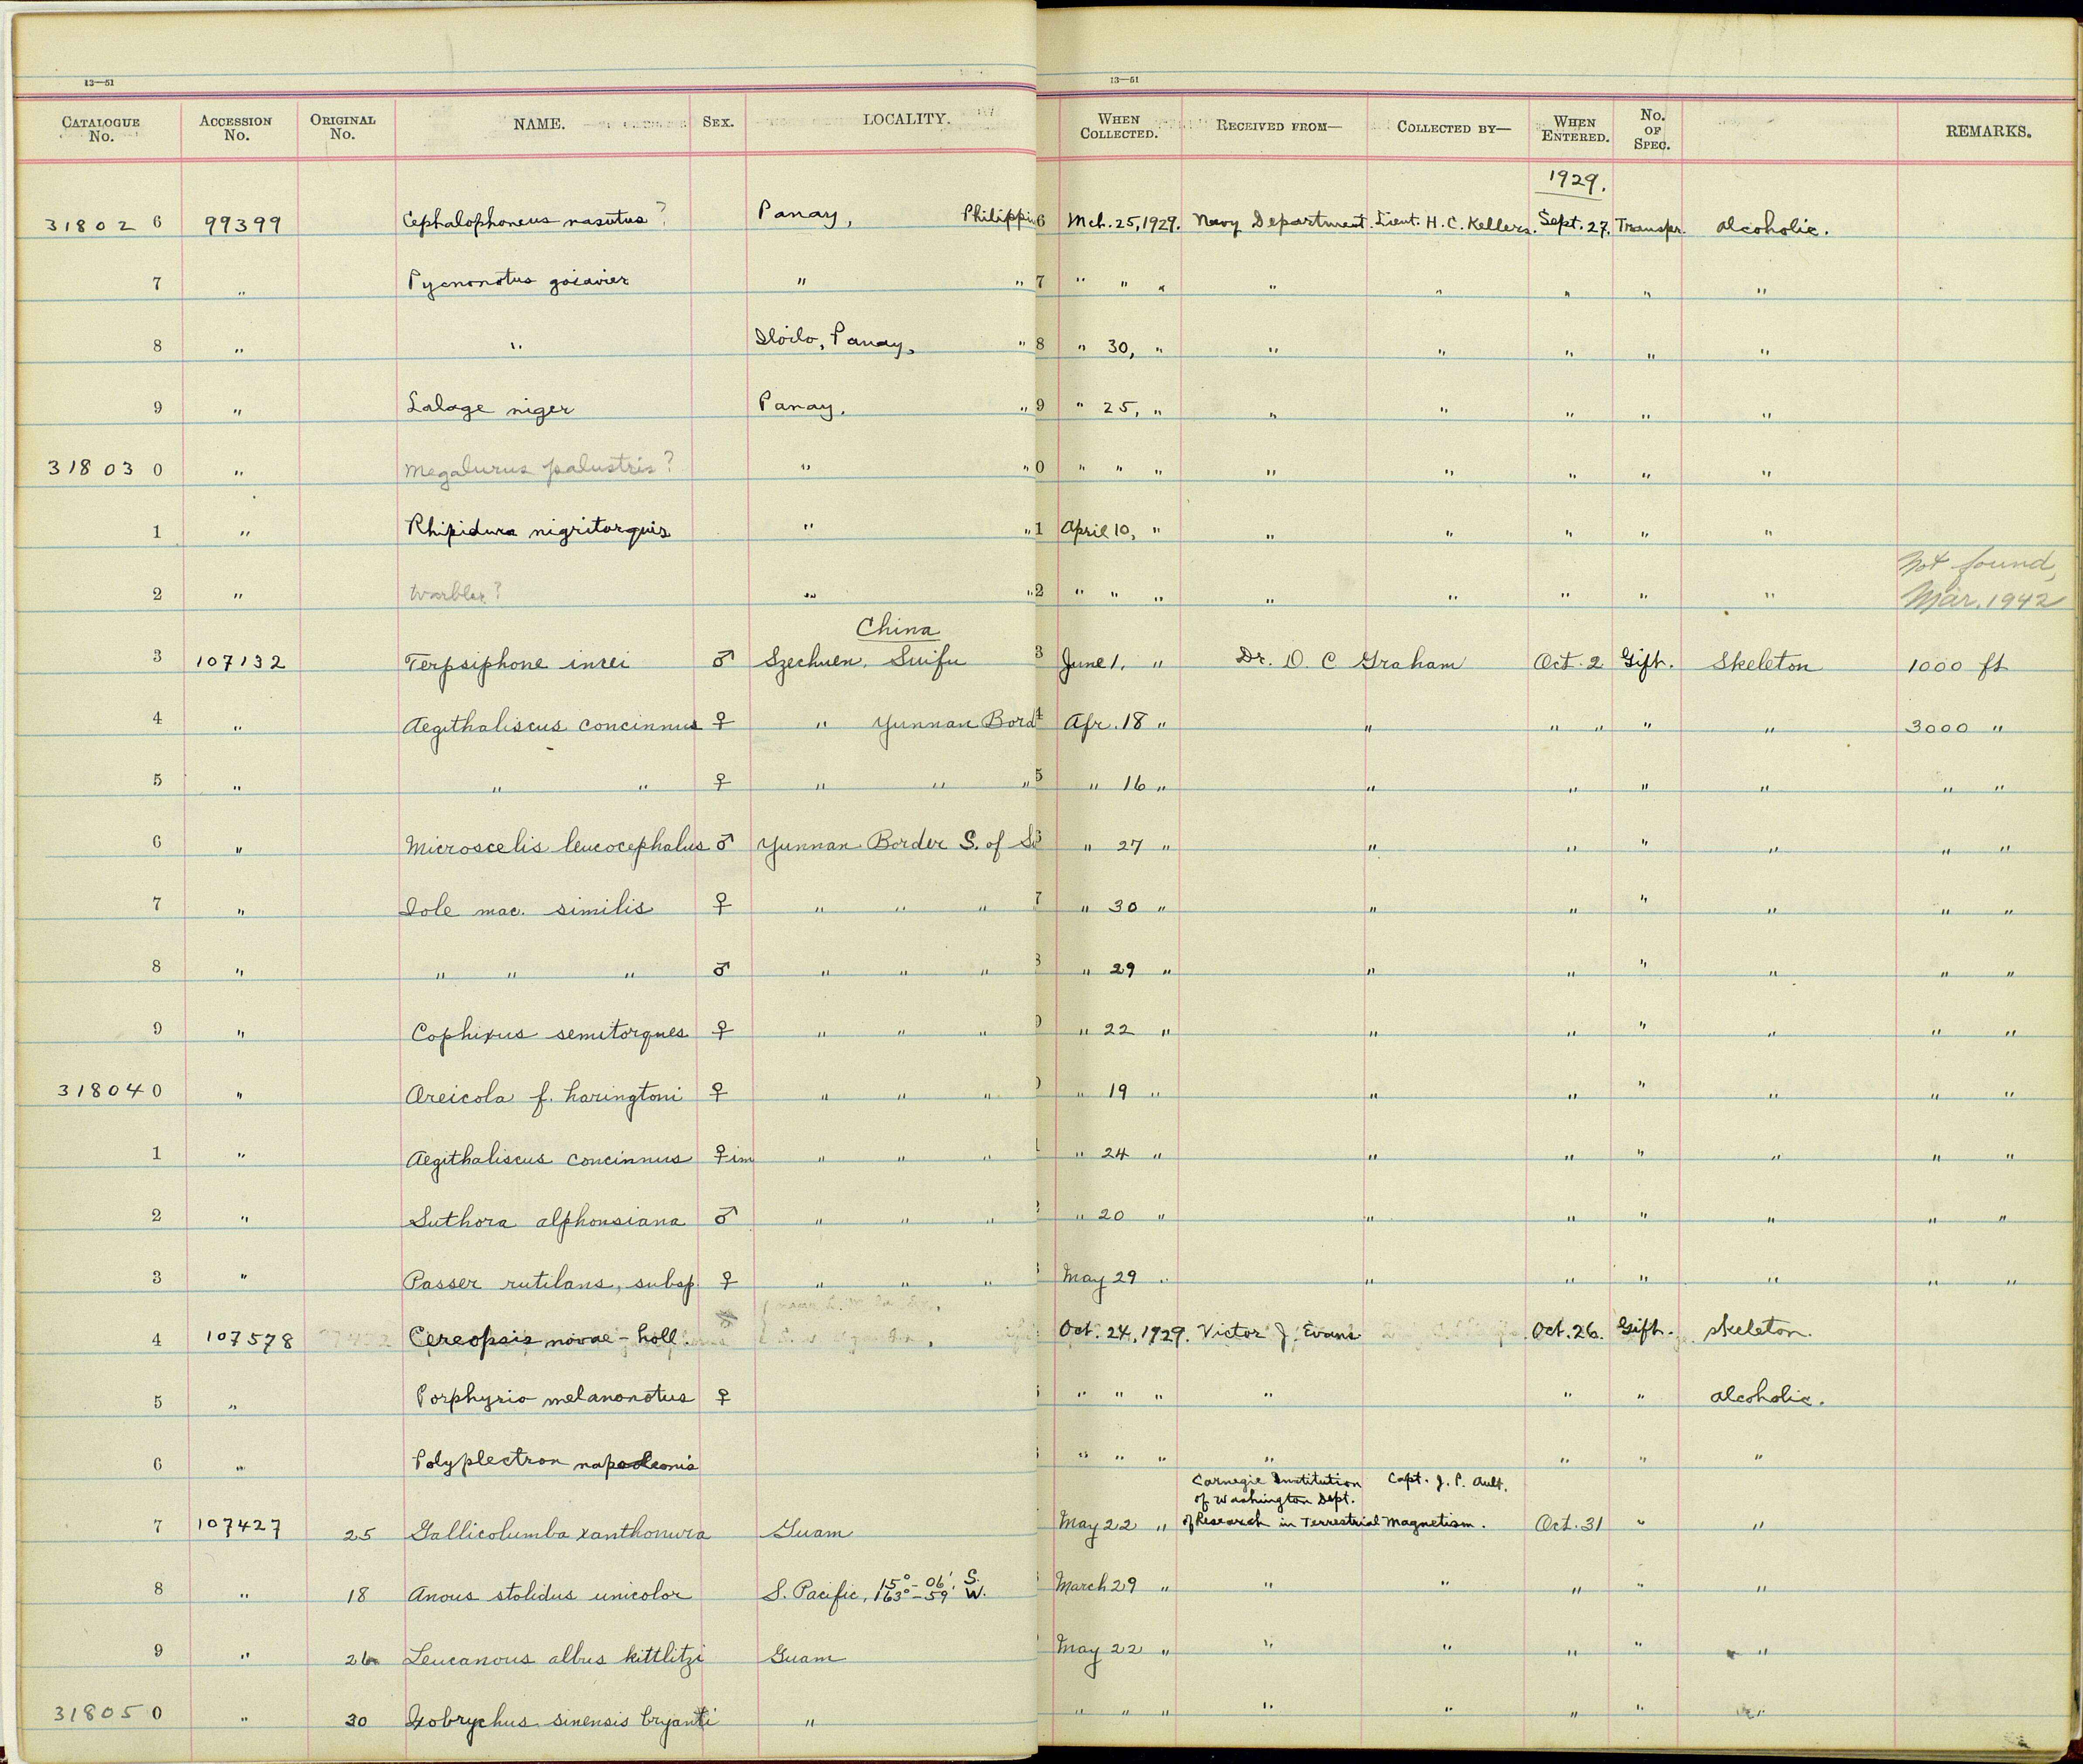 13—51 13—51
CATALOGUE No. ACCESSION No. ORIGINAL No. NAME. SEX. LOCALITY. WHEN COLLECTED. RECEIVED FROM— COLLECTED BY— WHEN ENTERED. No. OF SPEC. REMARKS.
1929.
31802 6 99399 Cephalophoneus nasutus? Panay, Philippin 6 Mch. 25, 1929. Navy Department. Lieut. H. C. Kellers. Sept. 27. Transfr. alcoholic.
7 " Pycnonotus goiavier " " 7 " " " " " " " "
8 " " Iloilo, Panay, " 8 " 30, " " " " " "
9 " Lalage niger Panay, " 9 " 25, " " " " " "
31803 0 " Megalurus palustris? " " 0 " " " " " " " "
1 " Rhipidura nigritorquis " " 1 April 10, " " " " " "
2 " Warbler? " " 2 " " " " " " " " Not found, Mar. 1942
China
3 107132 Terpsiphone incei ♂ Szechuen, Suifu 3 June 1, " Dr. D. C Graham Oct. 2 Gift. Skeleton 1000 ft
4 " Aegithaliscus concinnus ♀ " Yunnan Bord 4 Apr. 18 " " " " " " 3000 "
5 " " " ♀ " " " 5 " 16 " " " " " " "
6 " Microscelis leucocephalus ♂ Yunnan Border S. of S " 27 " " " " " " "
7 " Iole mac. similis ♀ " " " 7 " 30 " " " " " " "
8 " " " " ♂ " " " " 29 " " " " " " "
9 " Cophixus semitorques ♀ " " " " 22 " " " " " " "
31804 0 " Oreicola f. haringtoni ♀ " " " " 19 " " " " " " "
1 " Aegithaliscus concinnus ♀ im " " " " 24 " " " " " " "
2 " Suthora alphonsiana ♂ " " " " 20 " " " " " " "
3 " Passer rutilans, subsp. ♀ " " " May 29 " " " " " " "
4 107578 Cereopsis novae-holl. Oct. 24, 1929. Victor J. Evans Oct. 26. Gift. skeleton.
5 " Porphyrio melanonotus ♀ " " " " " " alcoholic.
6 " Polyplectron napoleonis " " " " " " "
Carnegie Institution Capt. J. P. Ault.
of Washington Dept.
7 107427 25 Gallicolumba xanthonura Guam May 22 " of Research in Terrestrial Magnetism. Oct. 31 " "
8 " 18 Anous stolidus unicolor S. Pacific, 15° – 06', S. 163° – 59' W. March 29 " " " " " "
9 " 26 Leucanous albus kittlitzi Guam May 22 " " " " " "
31805 0 " 30 Ixobrychus sinensis bryanti " " " " " " " " "